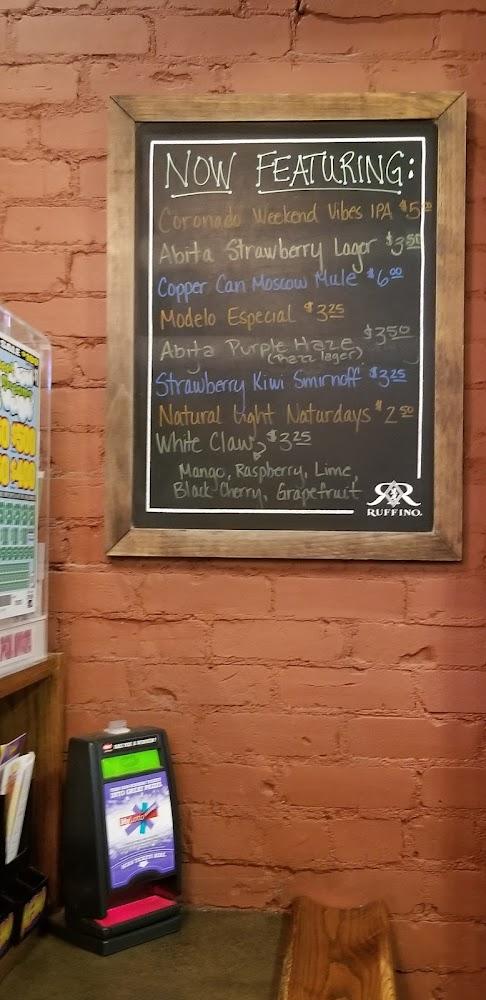 NOW FEATURING:
Coronado Weekend Vibes IPA $5.00
Abita Strawberry Lager $3.50
Copper Can Moscow Mule $6.00
Modelo Especial $3.25
Abita Purple Haze $3.50
(razz lager)
Strawberry Kiwi Smirnoff $3.25
Natural Light Naturdays $2.50
White Claw $3.25
Mango, Raspberry, Lime,
Black Cherry, Grapefruit
RUFFINO.
ARE YOU A WINNER?
INTO GREAT PRIZES
MyLotto
SCAN TICKETS HERE